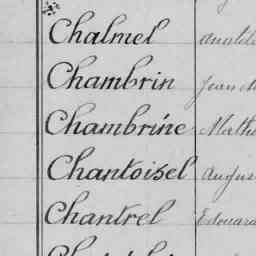 Chalmel
Chambrin Jean
Chambrine
Chantoisel
Chantrel Edouard